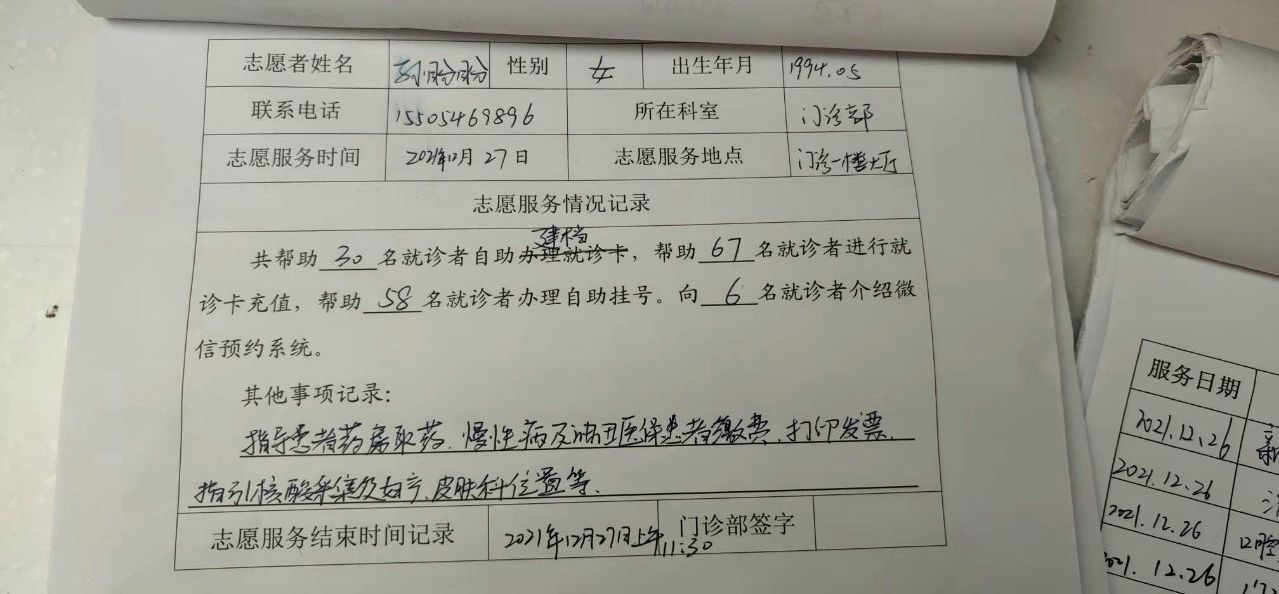 志愿者姓名 性别 女 出生年月 1994.05
联系电话 15505469896 所在科室 门诊部
志愿服务时间 2021年12月27日 志愿服务地点 门诊一楼大厅
志愿服务情况记录
建档
共帮助 30 名就诊者自助办理就诊卡，帮助 67 名就诊者进行就
诊卡充值，帮助 58 名就诊者办理自助挂号。向 6 名就诊者介绍微
信预约系统。
其他事项记录：
指导患者药房取药、慢性病及油田医保患者缴费、打印发票、
指引核酸采集及妇产、皮肤科位置等、
志愿服务结束时间记录 2021年12月27日上午 11:30 门诊部签字
服务日期
2021.12.26
2021.12.26
2021.12.26 口腔
2021.12.26